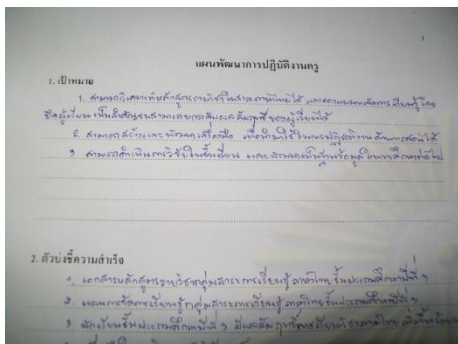 1
แผนพัฒนาการปฏิบัติงานครู
1. เป้าหมาย
1. สามารถวิเคราะห์หลักสูตรรายวิชาในสาระภาษาไทยได้ และออกแบบการจัดการเรียนรู้โดย
ยึดผู้เรียนเป็นสำคัญ ของผู้เรียนได้
2. สามารถสร้างและพัฒนาเครื่องมือ เพื่อนำมาใช้ในการปฏิบัติงานด้านการสอนได้
3. สามารถดำเนินการวิจัยในชั้นเรียน และ ข้อมูลในการศึกษาต่อไป
2. ตัวบ่งชี้ความสำเร็จ
1. เอกสารหลักสูตรรายวิชากลุ่มสาระการเรียนรู้ ภาษาไทย ชั้นประถมศึกษาปีที่ 1
2. แผนการจัดการเรียนรู้กลุ่มสาระการเรียนรู้ ภาษาไทยชั้นประถมศึกษาปีที่ 1
3. นักเรียนชั้นประถมศึกษาปีที่ 1 มีผลสัมฤทธิ์ทางการเรียนวิชาภาษาไทย